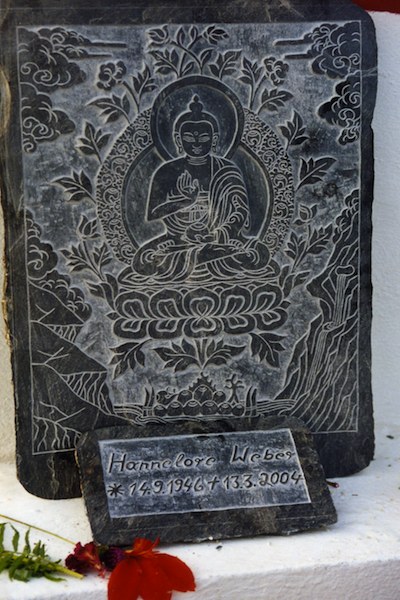 Hannelore Weber
* 14.9.1946 + 13.3.2004